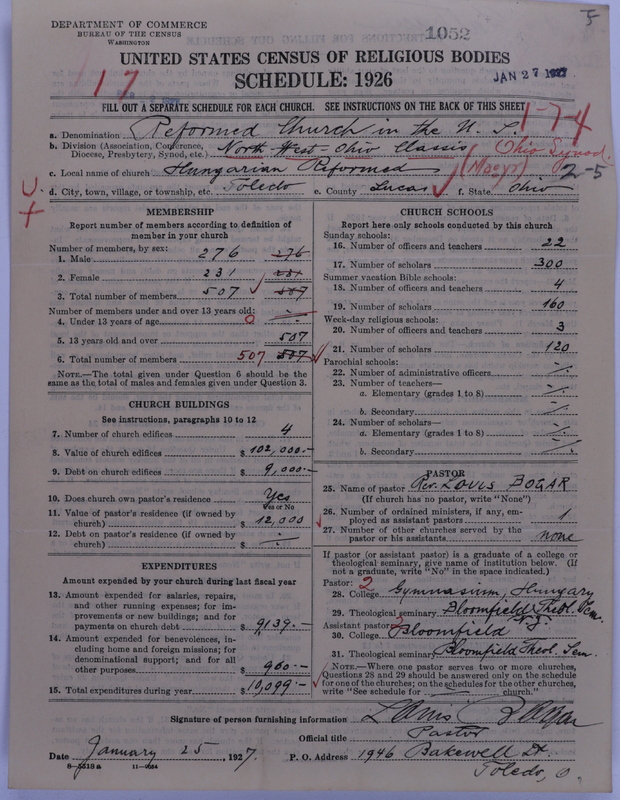 DEPARTMENT OF COMMERCE
BUREAU OF THE CENSUS
WASHINGTON
1052
5
UNITED STATES CENSUS OF RELIGIOUS BODIES
SCHEDULE: 1926
JAN 27 1927
17
FILL OUT A SEPARATE SCHEDULE FOR EACH CHURCH. SEE INSTRUCTIONS ON THE BACK OF THIS SHEET
1-7-4
a. Denomination Reformed Church in the U. S.
b. Division (Association, Conference, Diocese, Presbytery, Synod, etc.) North-West-Ohio Classis Ohio Synod
c. Local name of church Hungarian Reformed (Magyr) 2-5
d. City, town, village, or township, etc. Toledo e. County Lucas f. State Ohio
MEMBERSHIP
Report number of members according to definition of
member in your church
Number of members, by sex:
1. Male 276 276
2. Female 231 231
3. Total number of members 507 507
Number of members under and over 13 years old:
4. Under 13 years of age 0
5. 13 years old and over 507
6. Total number of members 507 507
NOTE.—The total given under Question 6 should be
same as the total of males and females given under Question 3.
CHURCH BUILDINGS
See instructions, paragraphs 10 to 12
7. Number of church edifices 4
8. Value of church edifices $ 102,000.—
9. Debt on church edifices $ 9,000.—
10. Does church own pastor's residence Yes
Yes or No
11. Value of pastor's residence (if owned by
church) $ 12,000
12. Debt on pastor's residence (if owned by
church) $ ⁒
EXPENDITURES
Amount expended by your church during last fiscal year
13. Amount expended for salaries, repairs,
and other running expenses; for im-
provements or new buildings; and for
payments on church debt $ 9139.—
14. Amount expended for benevolences, in-
cluding home and foreign missions; for
denominational support; and for all
other purposes $ 960.—
15. Total expenditures during year $ 10,099.—
CHURCH SCHOOLS
Report here only schools conducted by this church
Sunday schools:
16. Number of officers and teachers 22
17. Number of scholars 300
Summer vacation Bible schools:
18. Number of officers and teachers 4
19. Number of scholars 160
Week-day religious schools:
20. Number of officers and teachers 3
21. Number of scholars 120
Parochial schools:
22. Number of administrative officers ⁒
23. Number of teachers—
a. Elementary (grades 1 to 8) ⁒
b. Secondary ⁒
24. Number of scholars—
a. Elementary (grades 1 to 8) ⁒
b. Secondary ⁒
PASTOR
25. Name of pastor Rev. LOUIS BOGAR
(If church has no pastor, write "None")
26. Number of ordained ministers, if any, em-
ployed as assistant pastors 1
27. Number of other churches served by the
pastor or his assistants none
If pastor (or assistant pastor) is a graduate of a college or
theological seminary, give name of institution below. (If
not a graduate, write "No" in the space indicated.)
Pastor: 2
28. College Gymnasium, Hungary
29. Theological seminary Bloomfield Theol. Sem.
Assistant pastor: N.J.
30. College Bloomfield
31. Theological seminary Bloomfield Theol. Sem.
NOTE.—Where one pastor serves two or more churches,
Questions 28 and 29 should be answered only on the schedule
for one of the churches; on the schedules for the other churches,
write "See schedule for church."
Signature of person furnishing information Louis Bogar
Official title Pastor
Date January 25, 1927. P. O. Address 1946 Bakewell St.
Toledo, O.